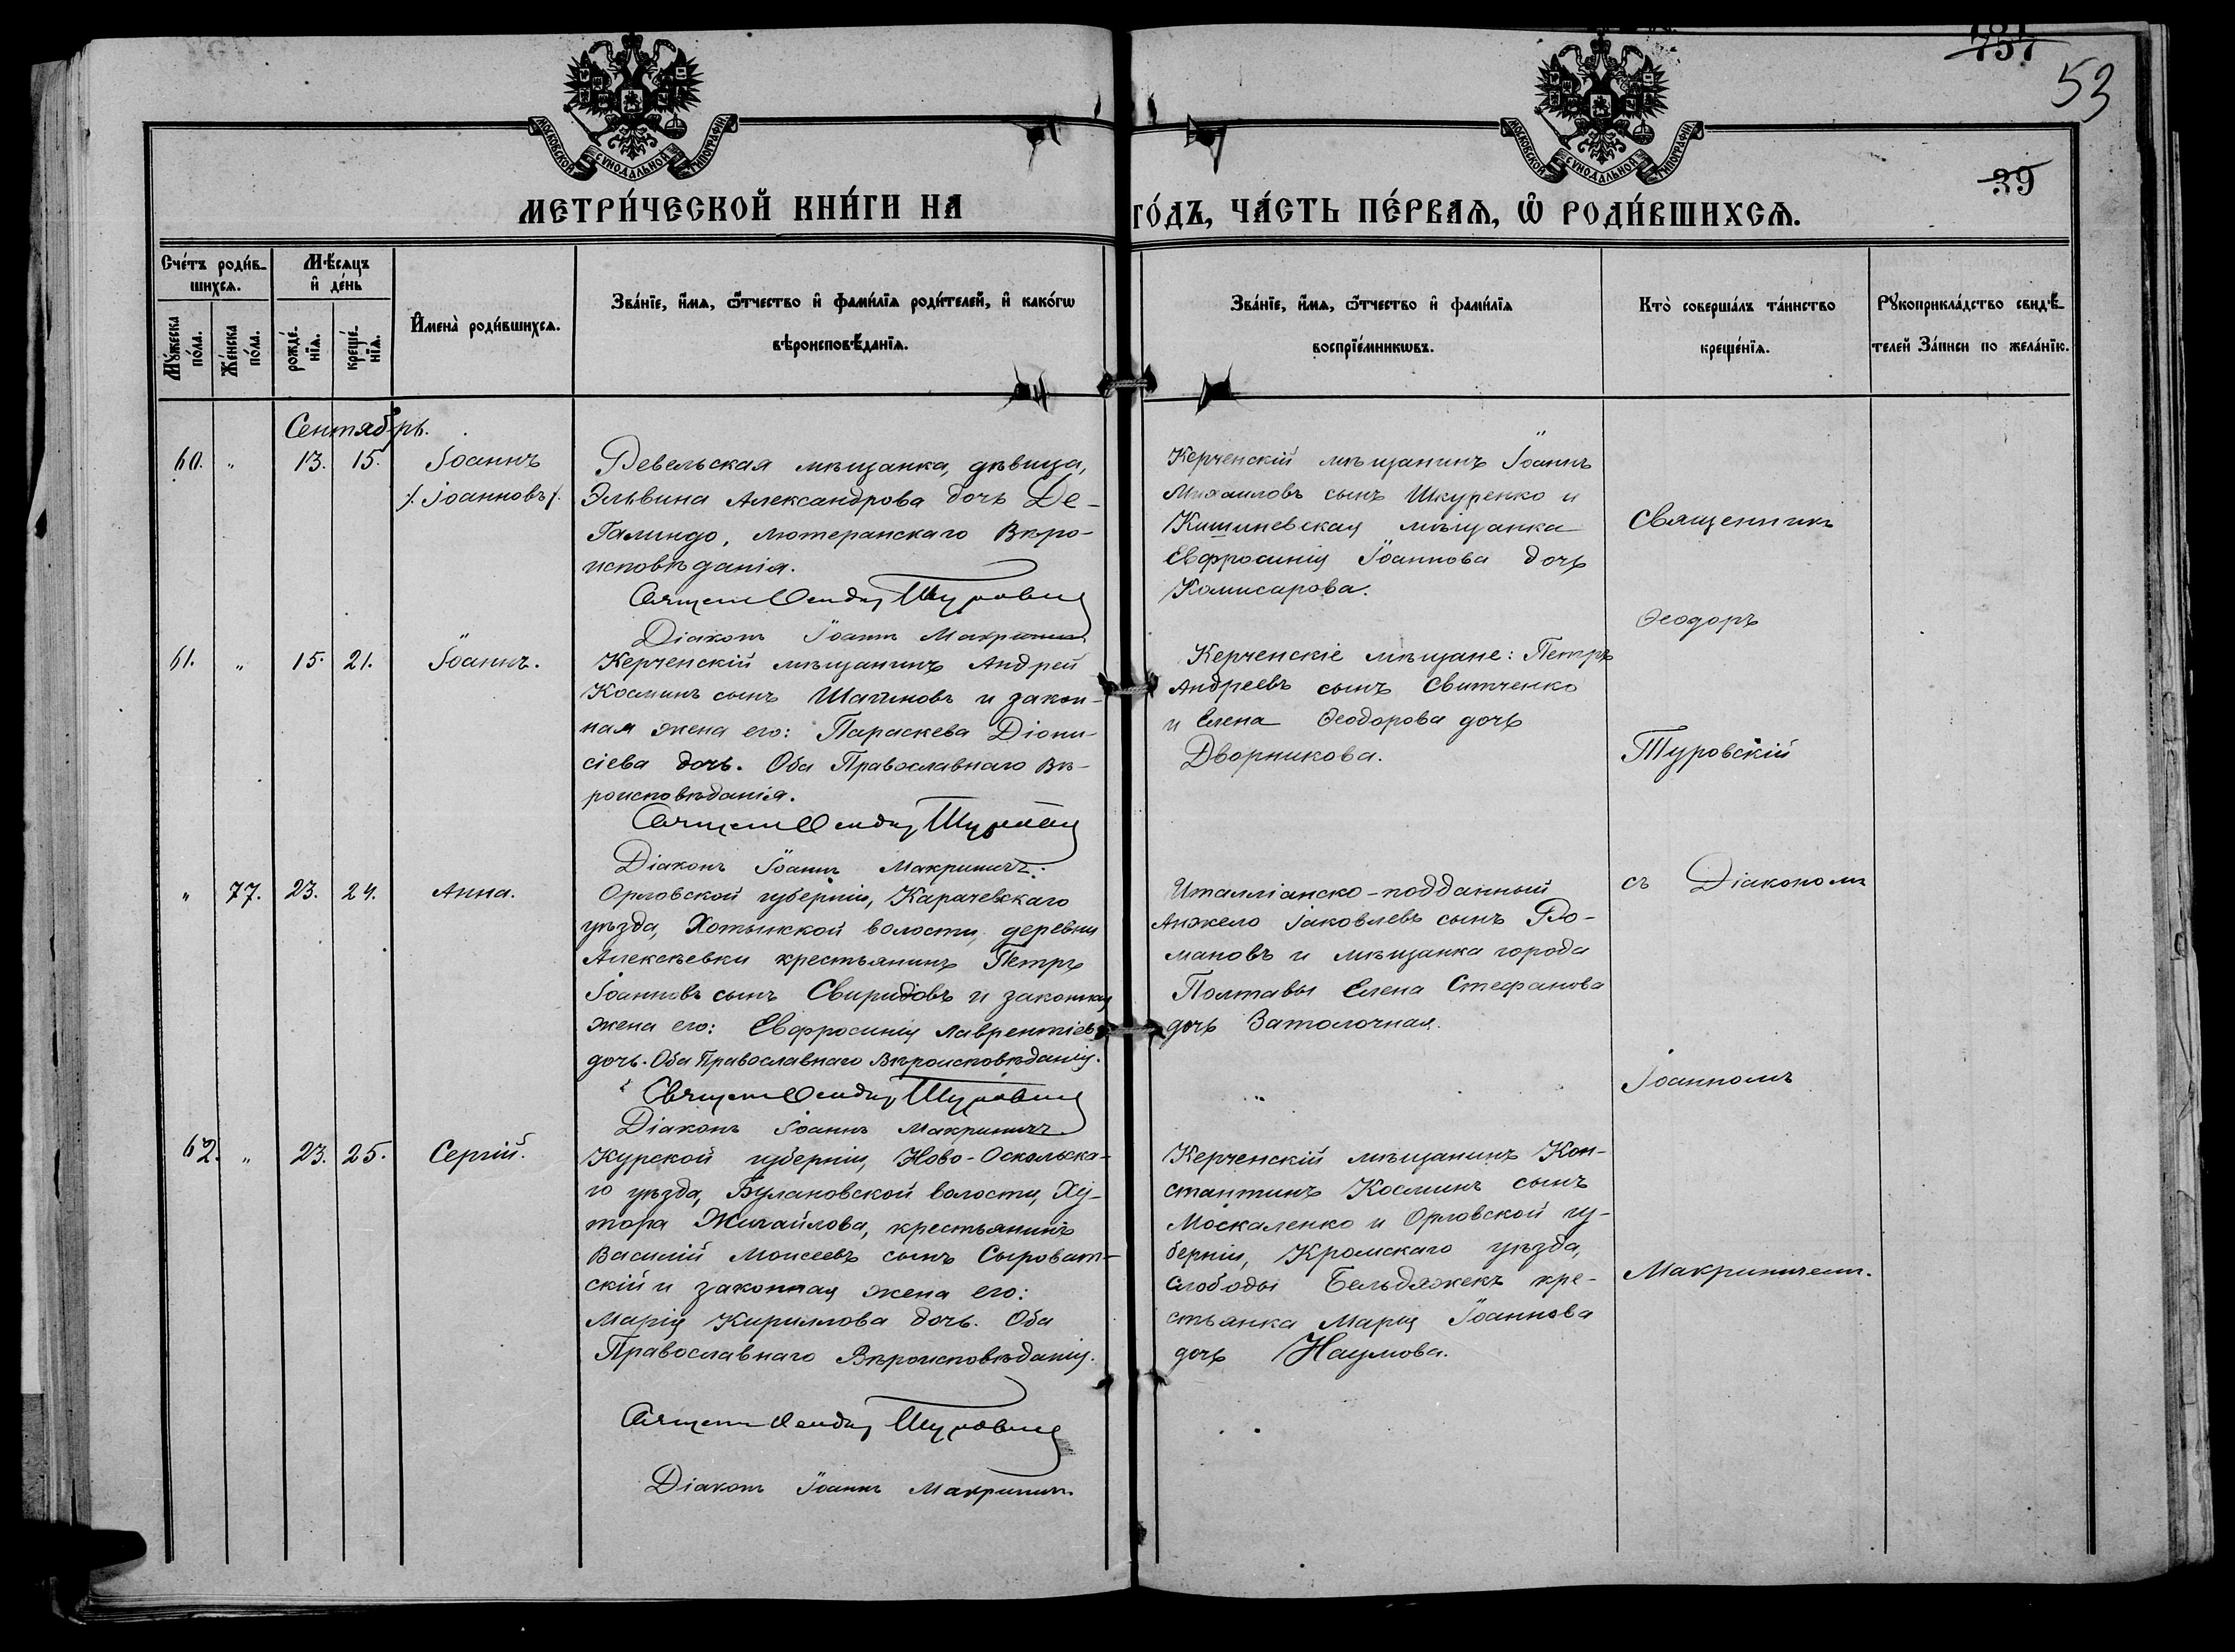 757
53
39
МОСКОВСКОЙ СѴНОДАЛЬНОЙ ТИПОГРАФІИ
МОСКОВСКОЙ СѴНОДАЛЬНОЙ ТИПОГРАФІИ
МЕТРИ́ЧЕСКОЙ КНИ́ГИ НА
ГО́ДЪ, ЧА́СТЬ ПЕ́РВАѦ, Ѡ҆ РОДИ́ВШИХСѦ.
Сче́тъ роди́в-
шихсѧ.
Мѣ́сѧцъ
и҆ де́нь
Мꙋ́жеска
по́ла.
Же́нска
по́ла.
рожде́-
нїѧ.
креще́-
нїѧ.
И҆мена̀ роди́вшихсѧ.
Зва́нїе, и҆́мѧ, ѻ҆́тчество и҆ фами́лїѧ роди́телей, и҆ како́гѡ
вѣроисповѣ́данїѧ.
Зва́нїе, и҆́мѧ, ѻ҆́тчество и҆ фами́лїѧ
воспрїе́мникѡвъ.
Кто̀ соверша́лъ та́инство
креще́нїѧ.
Рꙋкоприкла́дство свидѣ́-
телей За́писи по жела́нїю.
Сентябрь.
60. " 13. 15. Іоаннъ
/.Іоанновъ/.
Ревельская мѣщанка, дѣвица,
Эльвина Александрова дочь Де-
Галиндо, лютеранскаго Вѣро-
исповѣданія.
Священ Ѳеодор Туровскій
Діаконъ Іоаннъ Макриничъ
Керченскій мѣщанинъ Іоаннъ
Михаиловъ сынъ Шкуренко и
Кишиневская мѣщанка
Евфросинія Іоаннова дочь
Комисарова.
Священникъ
Ѳеодоръ
Туровскій
съ Діакономъ
Іоанномъ
Макриничемъ.
61. " 15. 21. Іоаннъ.
Керченскій мѣщанинъ Андрей
Косминъ сынъ Шатиновъ и закон-
ная жена его: Параскева Діони-
сіева дочь. Оба Православнаго Вѣ-
роисповѣданія.
Священ Ѳеодор Туровскій
Діаконъ Іоаннъ Макриничъ.
Керченскіе мѣщане: Петръ
Андреевъ сынъ Свитченко
и Елена Ѳеодорова дочь
Дворникова.
" 77. 23. 24. Анна.
Орловской губерніи, Карачевскаго
уѣзда, Хотынской волости, деревни
Алексѣевки крестьянинъ Петръ
Іоанновъ сынъ Свиридовъ и законная
жена его: Евфросинія Лаврентіева
дочь. Оба Православнаго Вѣроисповѣданія.
Священ Ѳеодор Туровскій
Діаконъ Іоаннъ Макриничъ
Италліанско-подданный
Анжело Іаковлевъ сынъ Ро-
мановъ и мѣщанка города
Полтавы Елена Стефанова
дочь Затолочная.
62. " 23. 25. Сергій.
Курской губерніи, Ново-Оскольска-
го уѣзда, Булановской волости, Ху-
тора Жигайлова, крестьянинъ
Василій Моисеевъ сынъ Сыроват-
скій и законная жена его:
Марія Кириллова дочь. Оба
Православнаго Вѣроисповѣданія.
Священ Ѳеодор Туровскій
Діаконъ Іоаннъ Макриничъ
Керченскій мѣщанинъ Кон-
стантинъ Косминъ сынъ
Москаленко и Орловской гу-
берніи, Кромскаго уѣзда,
слободы Бельдяжекъ кре-
стьянка Марія Іоаннова
дочь Наумова.